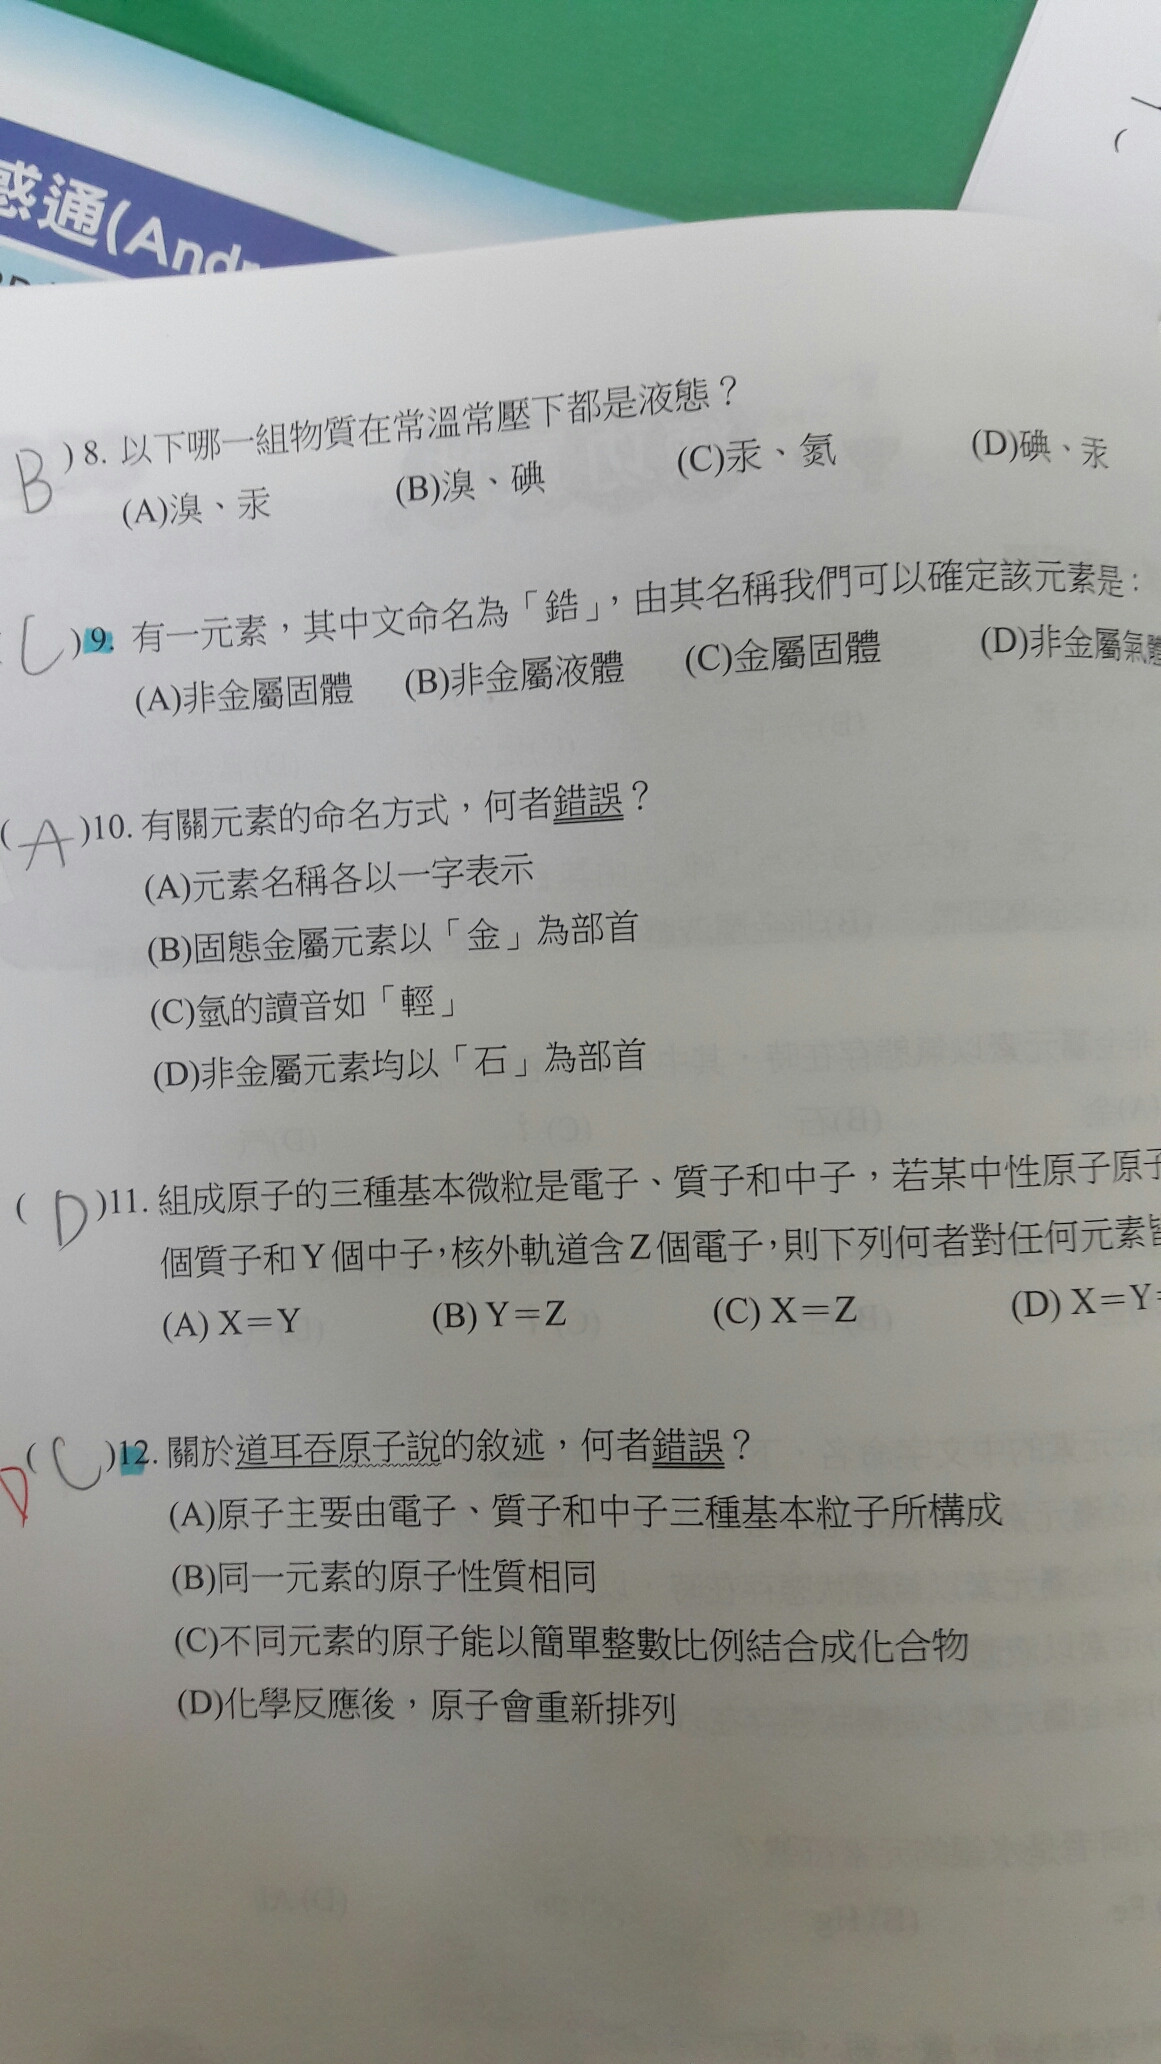 惑通(And
B )8. 以下哪一組物質在常溫常壓下都是液態？
(A)溴、汞 (B)溴、碘 (C)汞、氮 (D)碘、汞
C )9. 有一元素，其中文命名為「鋯」，由其名稱我們可以確定該元素是：
(A)非金屬固體 (B)非金屬液體 (C)金屬固體 (D)非金屬氣體
( A )10. 有關元素的命名方式，何者錯誤？
(A)元素名稱各以一字表示
(B)固態金屬元素以「金」為部首
(C)氫的讀音如「輕」
(D)非金屬元素均以「石」為部首
( D )11. 組成原子的三種基本微粒是電子、質子和中子，若某中性原子原子
個質子和Y個中子，核外軌道含Z個電子，則下列何者對任何元素皆
(A) X＝Y (B) Y＝Z (C) X＝Z (D) X＝Y＝
D ( C )12. 關於道耳吞原子說的敘述，何者錯誤？
(A)原子主要由電子、質子和中子三種基本粒子所構成
(B)同一元素的原子性質相同
(C)不同元素的原子能以簡單整數比例結合成化合物
(D)化學反應後，原子會重新排列